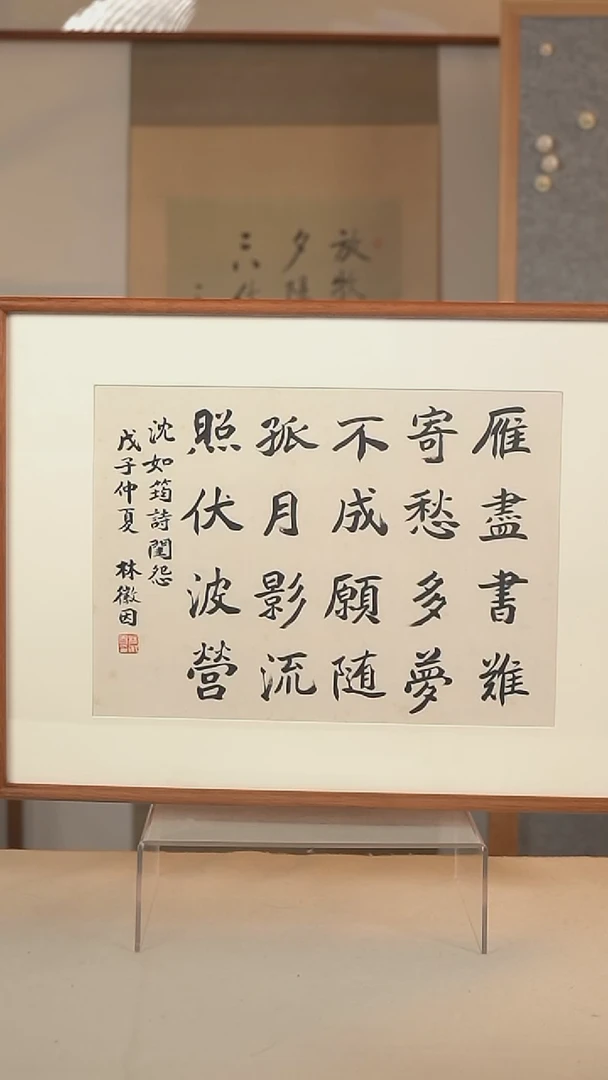 雁盡書難
寄愁多夢
不成願随
孤月影流
照伏波營
沈如筠詩閨怨
戊子仲夏 林徽因
放牧
夕陽
三